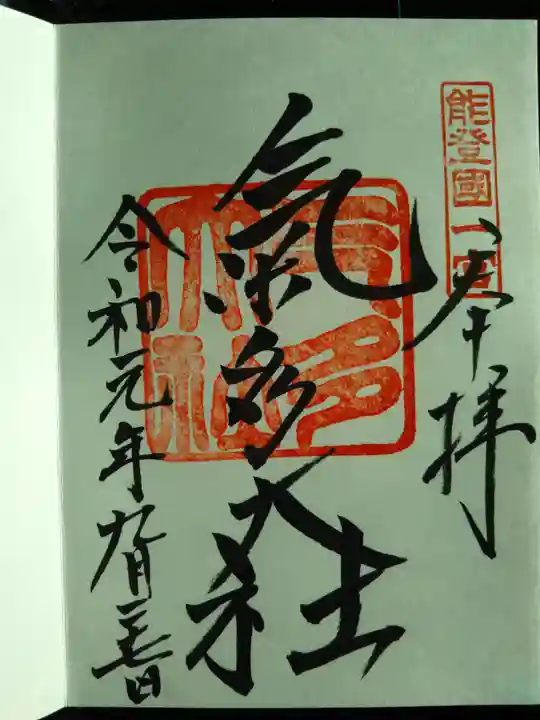 能登國一宮
奉拝
氣多大社
氣多大社
令和元年九月